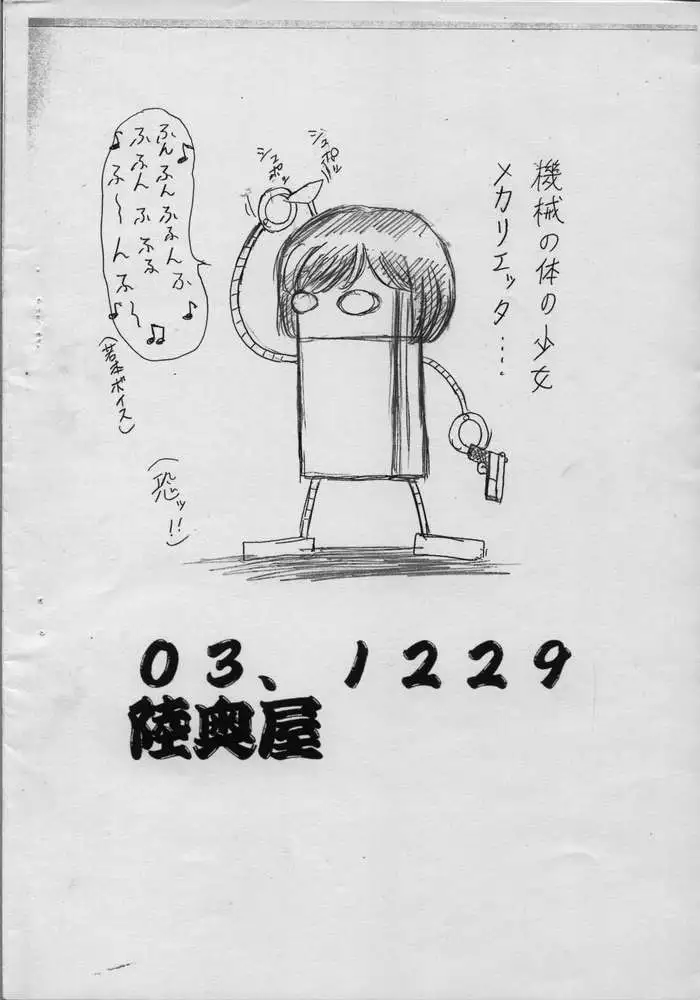 機械の体の少女
メカリエッタ…‥
ジュポッ
ジュポッ
♪ふんふんふふんふ
ふふんふふふ
ふ〜んふ〜♪♫
（若本ボイス）
（恐ッ!!）
03、1229
陸奥屋